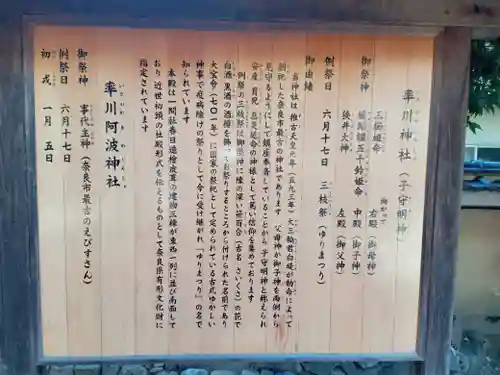 率川神社（子守明神）
御祭神
狭井大神 左殿（御父神）
例祭日 六月十七日 三枝祭（ゆりまつり）
御由緒
当神社は推古天皇元年（五九三年）大三輪君白堤が勅命によって
創祀した奈良市最古の神社であります 父母神が御子神を両側から
見守るようにして鎮座奉斎していることから子守明神と称えられ
安産 育児 息災延命の神様として篤い信仰を集めております
例祭の三枝祭は御祭神に縁の深い笹百合（古名 さいくさ）の花で
白酒 黒酒の酒樽を飾ってお祭りするところから付けられた名前であり
大宝令（七〇一年）に国家の祭祀として定められている古式ゆかしい
神事で疫病除けの祭りとして今に受け継がれ「ゆりまつり」の名で
知られています
本殿は一間社春日造檜皮葺の建物三棟が東西一列に並び南面して
おり 近世初頭の社殿形式を伝えるものとして奈良県有形文化財に
指定されています
率川阿波神社
いさがわ あわ じんじゃ
御祭神 事代主神（奈良市最古のえびすさん）
例祭日 六月十七日
初戎 一月 五日